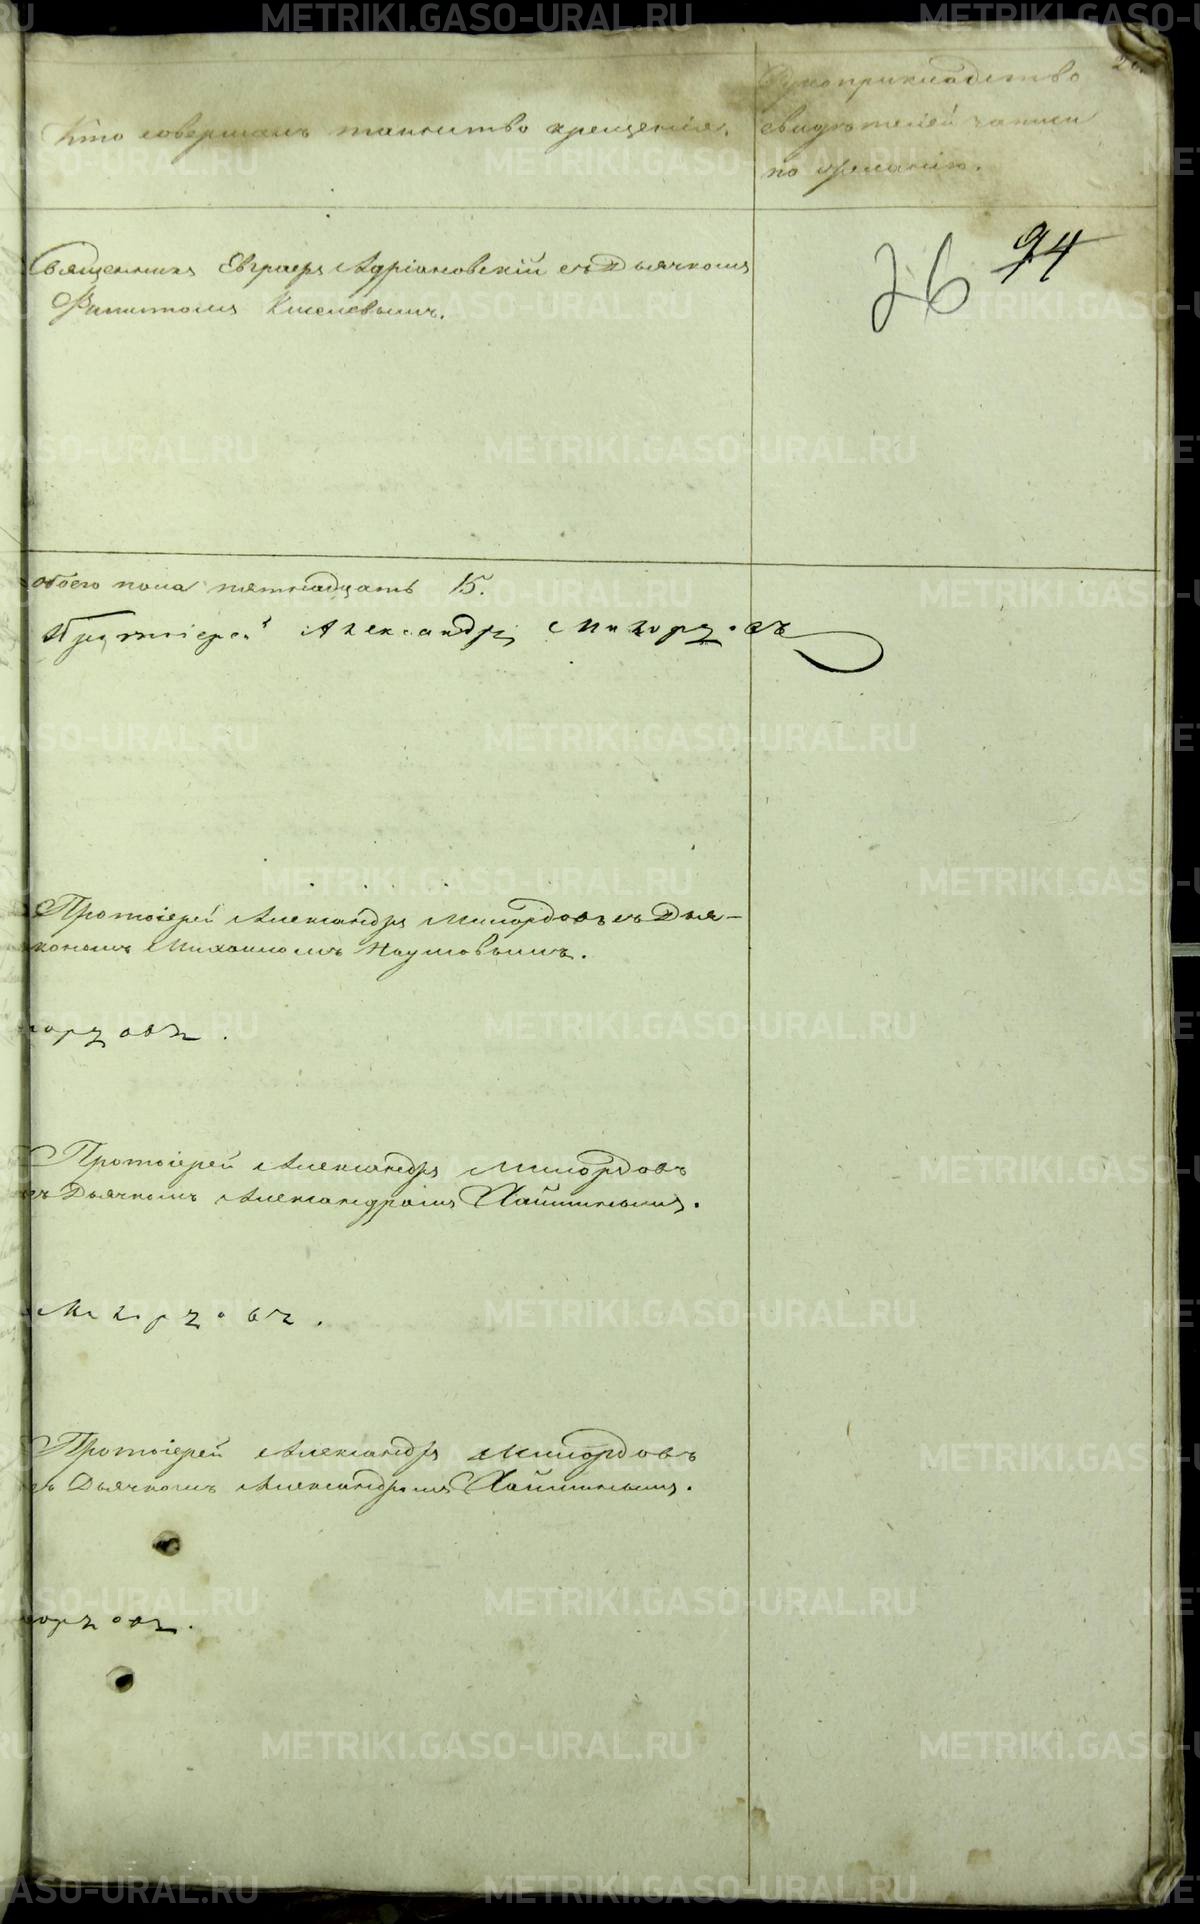 Кто совершалъ таинство крещенія.
Рукоприкладство
свидѣтелей записи
по желанію.
26 94
Священникъ Евграфъ Адріановскій съ Дьячкомъ
Филитомъ Киселевымъ.
обоего пола пятнадцать 15.
Протоіерей Александръ Милордовъ
Протоіерей Александръ Милордовъ съ Дья-
кономъ Михаиломъ Наумовымъ.
лордовъ.
Протоіерей Александръ Милордовъ
съ Дьячкомъ Александромъ Хайминымъ.
Милордовъ.
Протоіерей Александръ Милордовъ
съ Дьячкомъ Александромъ Хайминымъ.
лордовъ.
METRIKI.GASO-URAL.RU